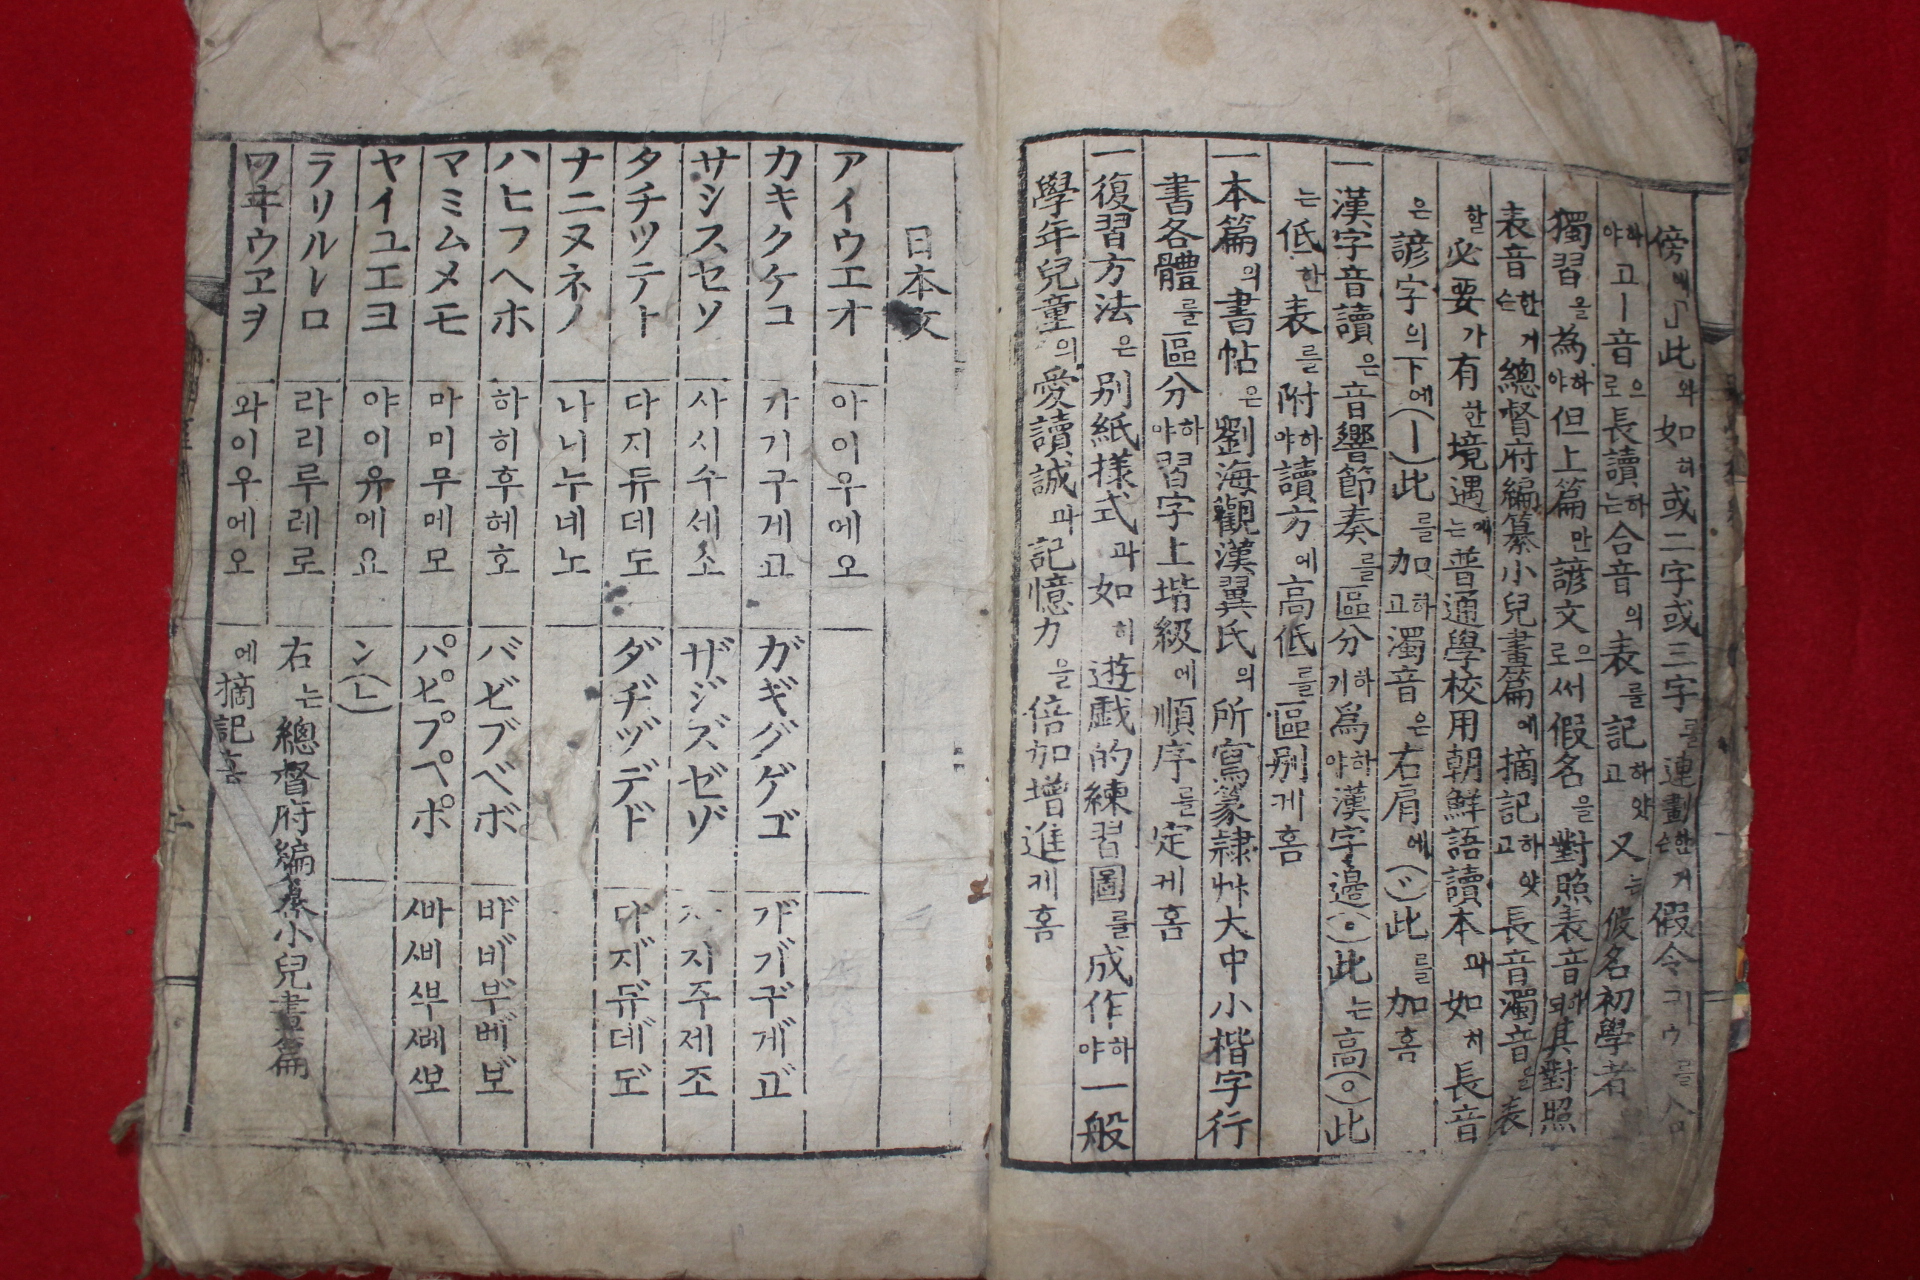 傍에」此와如히或二字或三字를連劃한손거假令귀ウ를
하야고ー音으로長讀하는合音의表를記하고얏又는假名初學者
獨習을爲하야但上篇만諺文으로써假名을對照表音해되其對照
表音한손거總督府編纂小兒畫篇에摘記하고얏長音濁音을表
할必要가有한境遇에는普通學校用朝鮮語讀本과如처長音
은諺字의下에(ー)此를加하고濁音은右肩에(〃)此를加홈
一漢字音讀은音響節奏를區分하기爲하야漢字邊(•)此는高(○)此
는低한表를附하야讀方에高低를區別케홈
一本篇의書帖은劉海觀漢翼氏의所寫篆隷艸大中小楷字行
書各體를區分하야習字上堦級에順序를定케홈
一復習方法은別紙樣式과如히遊戱的練習圖를成作하야一般
學年兒童의愛讀誠과記憶力을倍加增進케홈
日本文
アイウエオ 아이우에오
カキクケコ 가기구게고 ガギグゲゴ 가기구게고
サシスセソ 사시수세소 ザジズゼゾ 지주제조
タチツテト 다지듀데도 ダヂヅデド 다지듀데도
ナニヌネノ 나니누네노
ハヒフヘホ 하히후헤호 バビブベボ 바비부베보
マミムメモ 마미무메모 パピプペポ ᄲᅡᄲᅵᄲᅮᄲᅦᄲᅩ
ヤイユエヨ 야이유에요 ン(ㄴ)
ラリルレロ 라리루레로 右는總督府編纂小兒畫篇
ワヰウヱヲ 와이우에오 에摘記홈